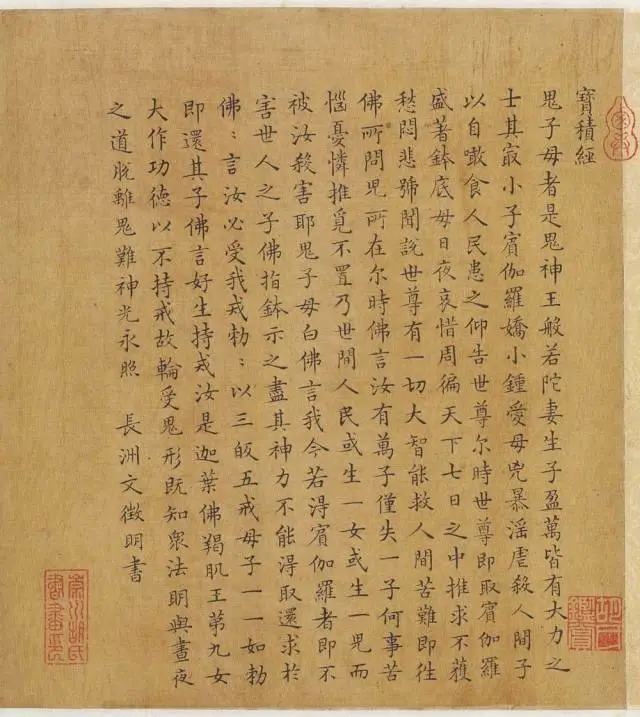 寶積經
鬼子母者是鬼神王般若陀妻生子盈萬皆有大力之
士其㝡小子賓伽羅嬌小鍾愛母兇暴滛虐殺人間子
以自噉食人民患之仰告世尊尔時世尊即取賓伽羅
盛著鉢底母日夜哀惜周徧天下七日之中推求不獲
愁悶悲號聞說世尊有一切大智能救人間苦難即徃
佛所問児所在尔時佛言汝有萬子僅失一子何事苦
惱憂憐推覓不置乃世間人民或生一女或生一児而
被汝殺害耶鬼子母白佛言我今若淂賓伽羅者即不
害世人之子佛指鉢示之盡其神力不能淂取還求於
佛〻言汝必受我戒勅〻以三皈五戒母子一一如勅
即還其子佛言好生持戒汝是迦葉佛羯肌王第九女
大作功德以不持戒故輪受鬼形既知眾法明與晝夜
之道脫離鬼難神光永照　長洲文徵明書